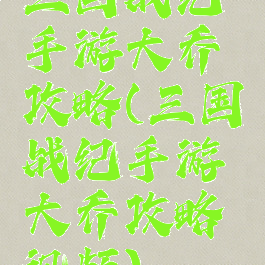 三国战纪
手游大乔
攻略(三国
战纪手游
大乔攻略
视频)